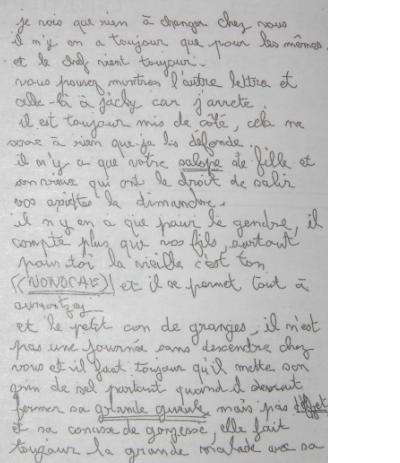 je vois que rien à changer chez vous
il n'y en a toujour que pour les mêmes.
et le chef vient toujour.
vous pouvez montrer l'autre lettre et
celle-là à jacky car j'arrete.
il est toujour mis de côté, cela ne
sere à rien que je les défende.
il n'y a que votre salope de fille et
son vieux qui ont le droit de salir
vos assiettes le dimanche.
il n y en a que pour le gendre, il
compte plus que vos fils, surtout
pour toi la vieille c'est ton
((NONOCAE)) et il se permet tout à
aumontzey
et le petit con de granges, il n'est
pas une journée sans descendre chez
vous et il faut toujour qu'il mette son
grin de sel partout quand il devrait
fermer sa grande gueule mais pas
et sa conasse de gonzesse, elle fait
toujour la grande malade avec sa